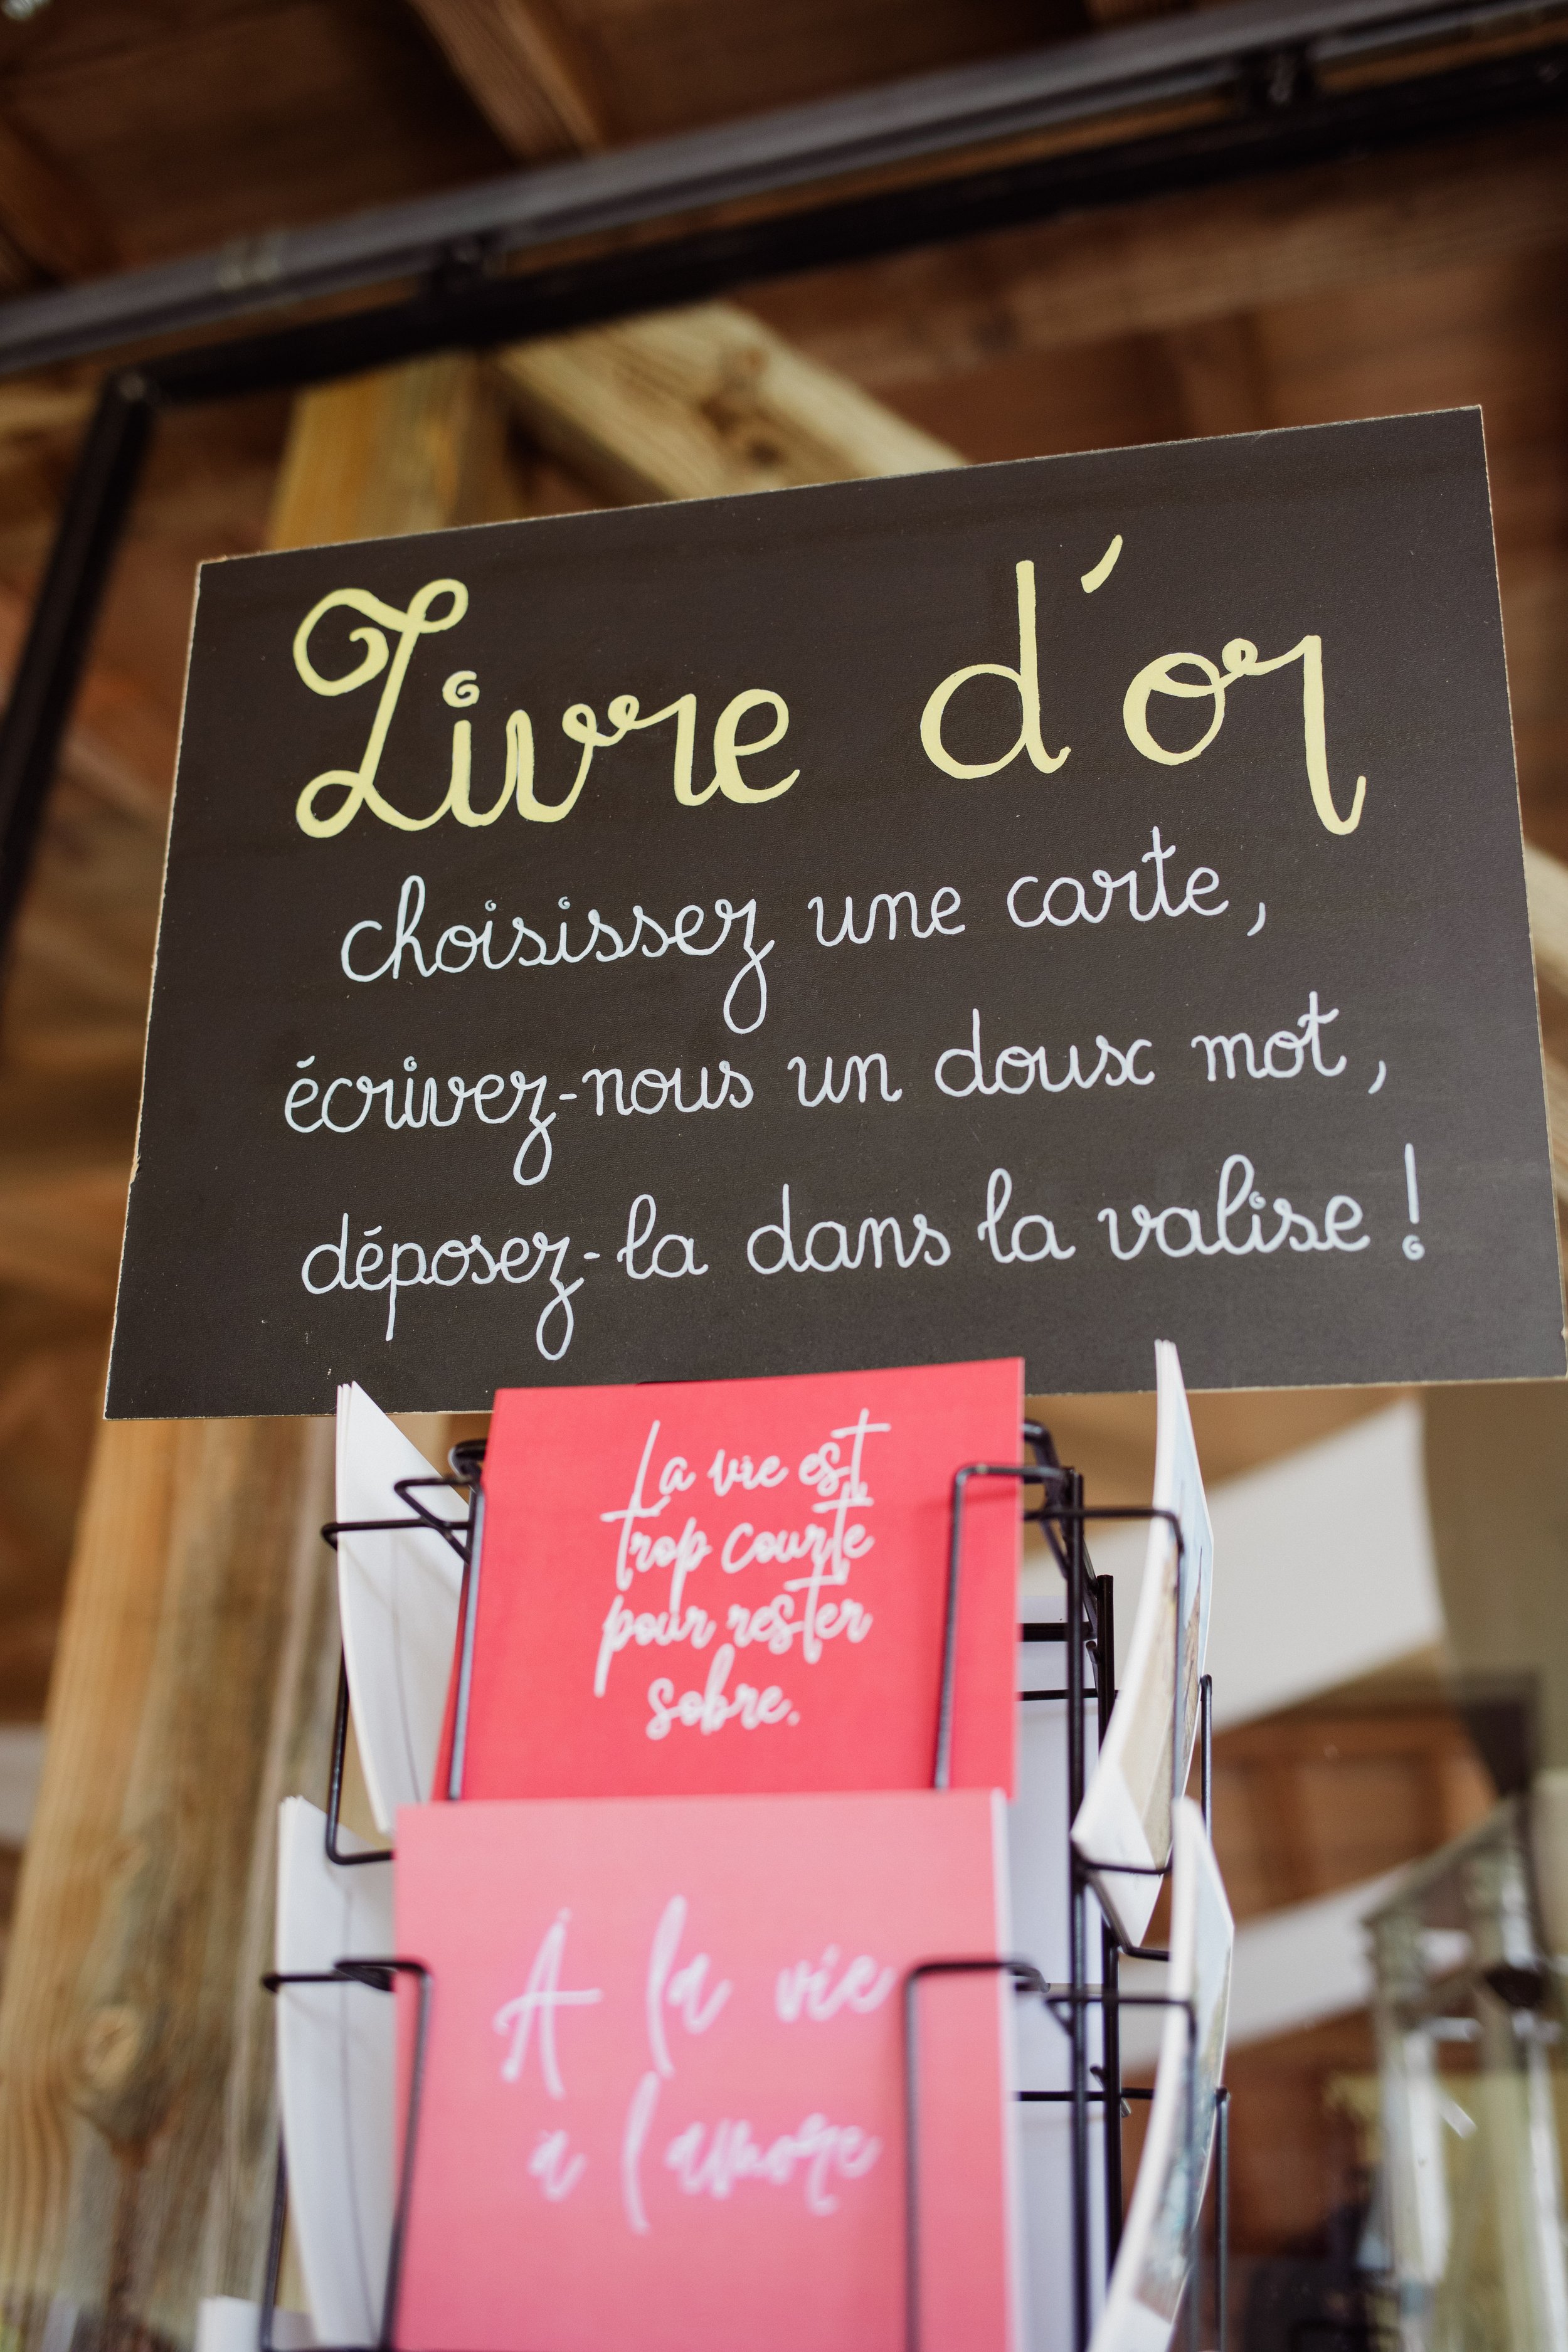 Livre d'or
choisissez une carte,
écrivez-nous un doux mot,
déposez-la dans la valise !
La vie est
trop courte
pour rester
sobre.
À la vie
à l'amore